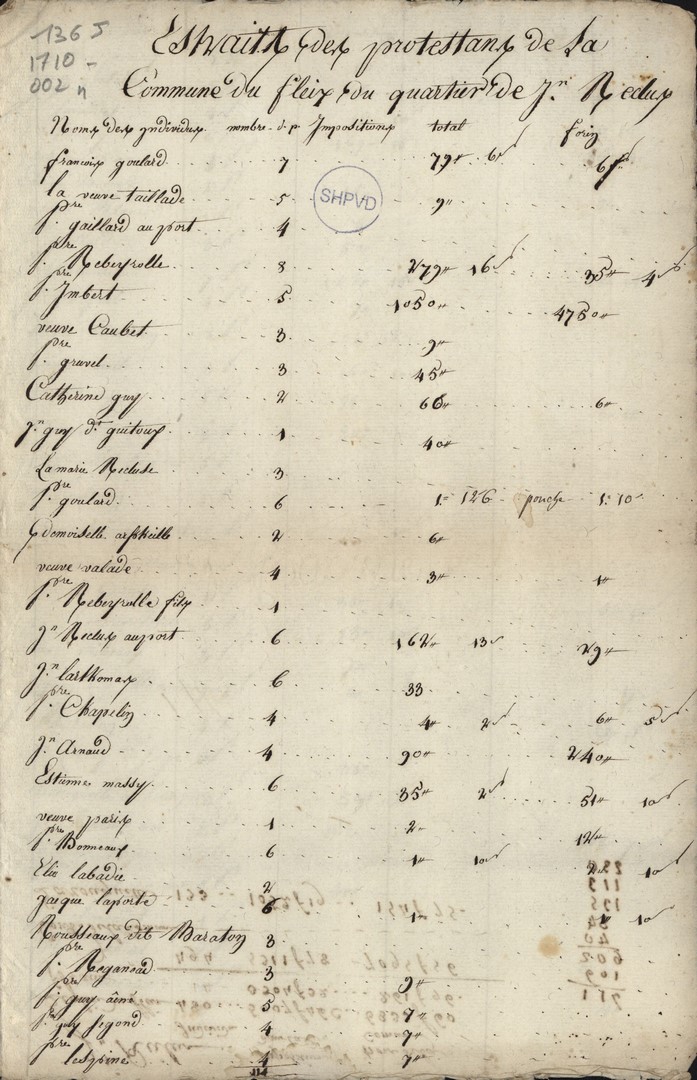 1365
1710 -
002 n
Estraitx dex protestanx de La
Commune du fleix du quartier de Jn Reclux
Nomx dex yndividux nombre d p Impositionx total forin
francoix goulard 7 79# 6s 6#
La veuve taillade 5 9"
SHPVD
pre gaillard au port 4
pre Rebeyrolle 8 279# 16s 35# 4s
pre Jmbert 5 1050# 4750#
veuve Caubet 3 9#
pre gruvel 3 45#
Catherine guy 2 66# 6#
Jn guy dt guitoux 1 40#
La marie Recluse 3
pre goulard 6 1= 126 pouche 1: 10
demoiselle 2 6#
veuve valade 4 3# 1#
pre Rebeyrolle fix 1
Jn Reclux au port 6 162# 13s 29#
Jn larthomax 6 33
pre Chapelin 4 4# 2s 6# 5s
Jn Arnaud 4 90# 240#
Estienne massy 6 35# 2s 51# 10s
veuve parix 1 2" 12#
pre Bonneaux 6 1# 10s 10s
Elie labadie 2
jaque laporte 6 1" 10s
Rousseaux dit Baraton 3
pre Reganead 3 9#
pre guy ainé 5 7#
pre guy segond 4 7#
pre lespine 4 7#
114